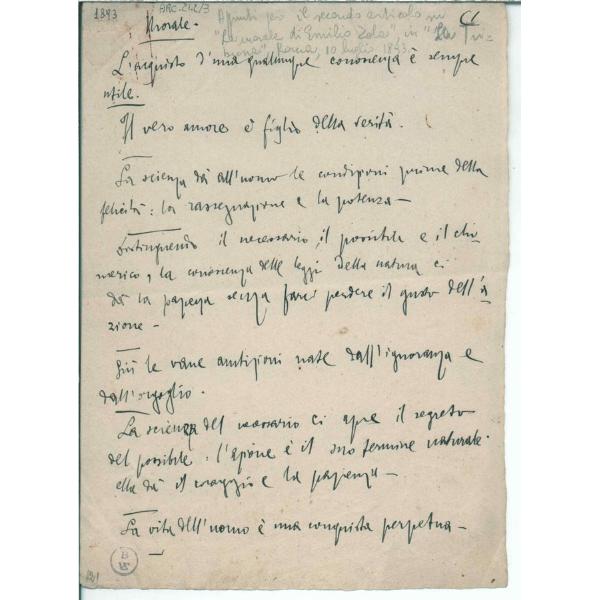 1893
ARC.242/3
C1
Morale.
Appunti per il secondo articolo su
"La morale di Emilio Zola", in "La Tri-
buna", Roma, 10 luglio 1893.
L'acquisto d'una qualunque conoscenza è sempre
utile.
Il vero amore è figlio della verità.
La scienza dà all'uomo le condizioni prime della
felicità: la rassegnazione e la potenza —
Distinguendo il necessario, il possibile e il chi-
merico, la conoscenza delle leggi della natura ci
dà la pazienza senza farci perdere il gusto dell'a-
zione —
Giù le vane ambizioni nate dall'ignoranza e
dall'orgoglio.
La scienza del necessario ci apre il segreto
del possibile. l'azione è il suo termine naturale.
ella dà il coraggio e la pazienza —
La vita dell'uomo è una conquista perpetua —